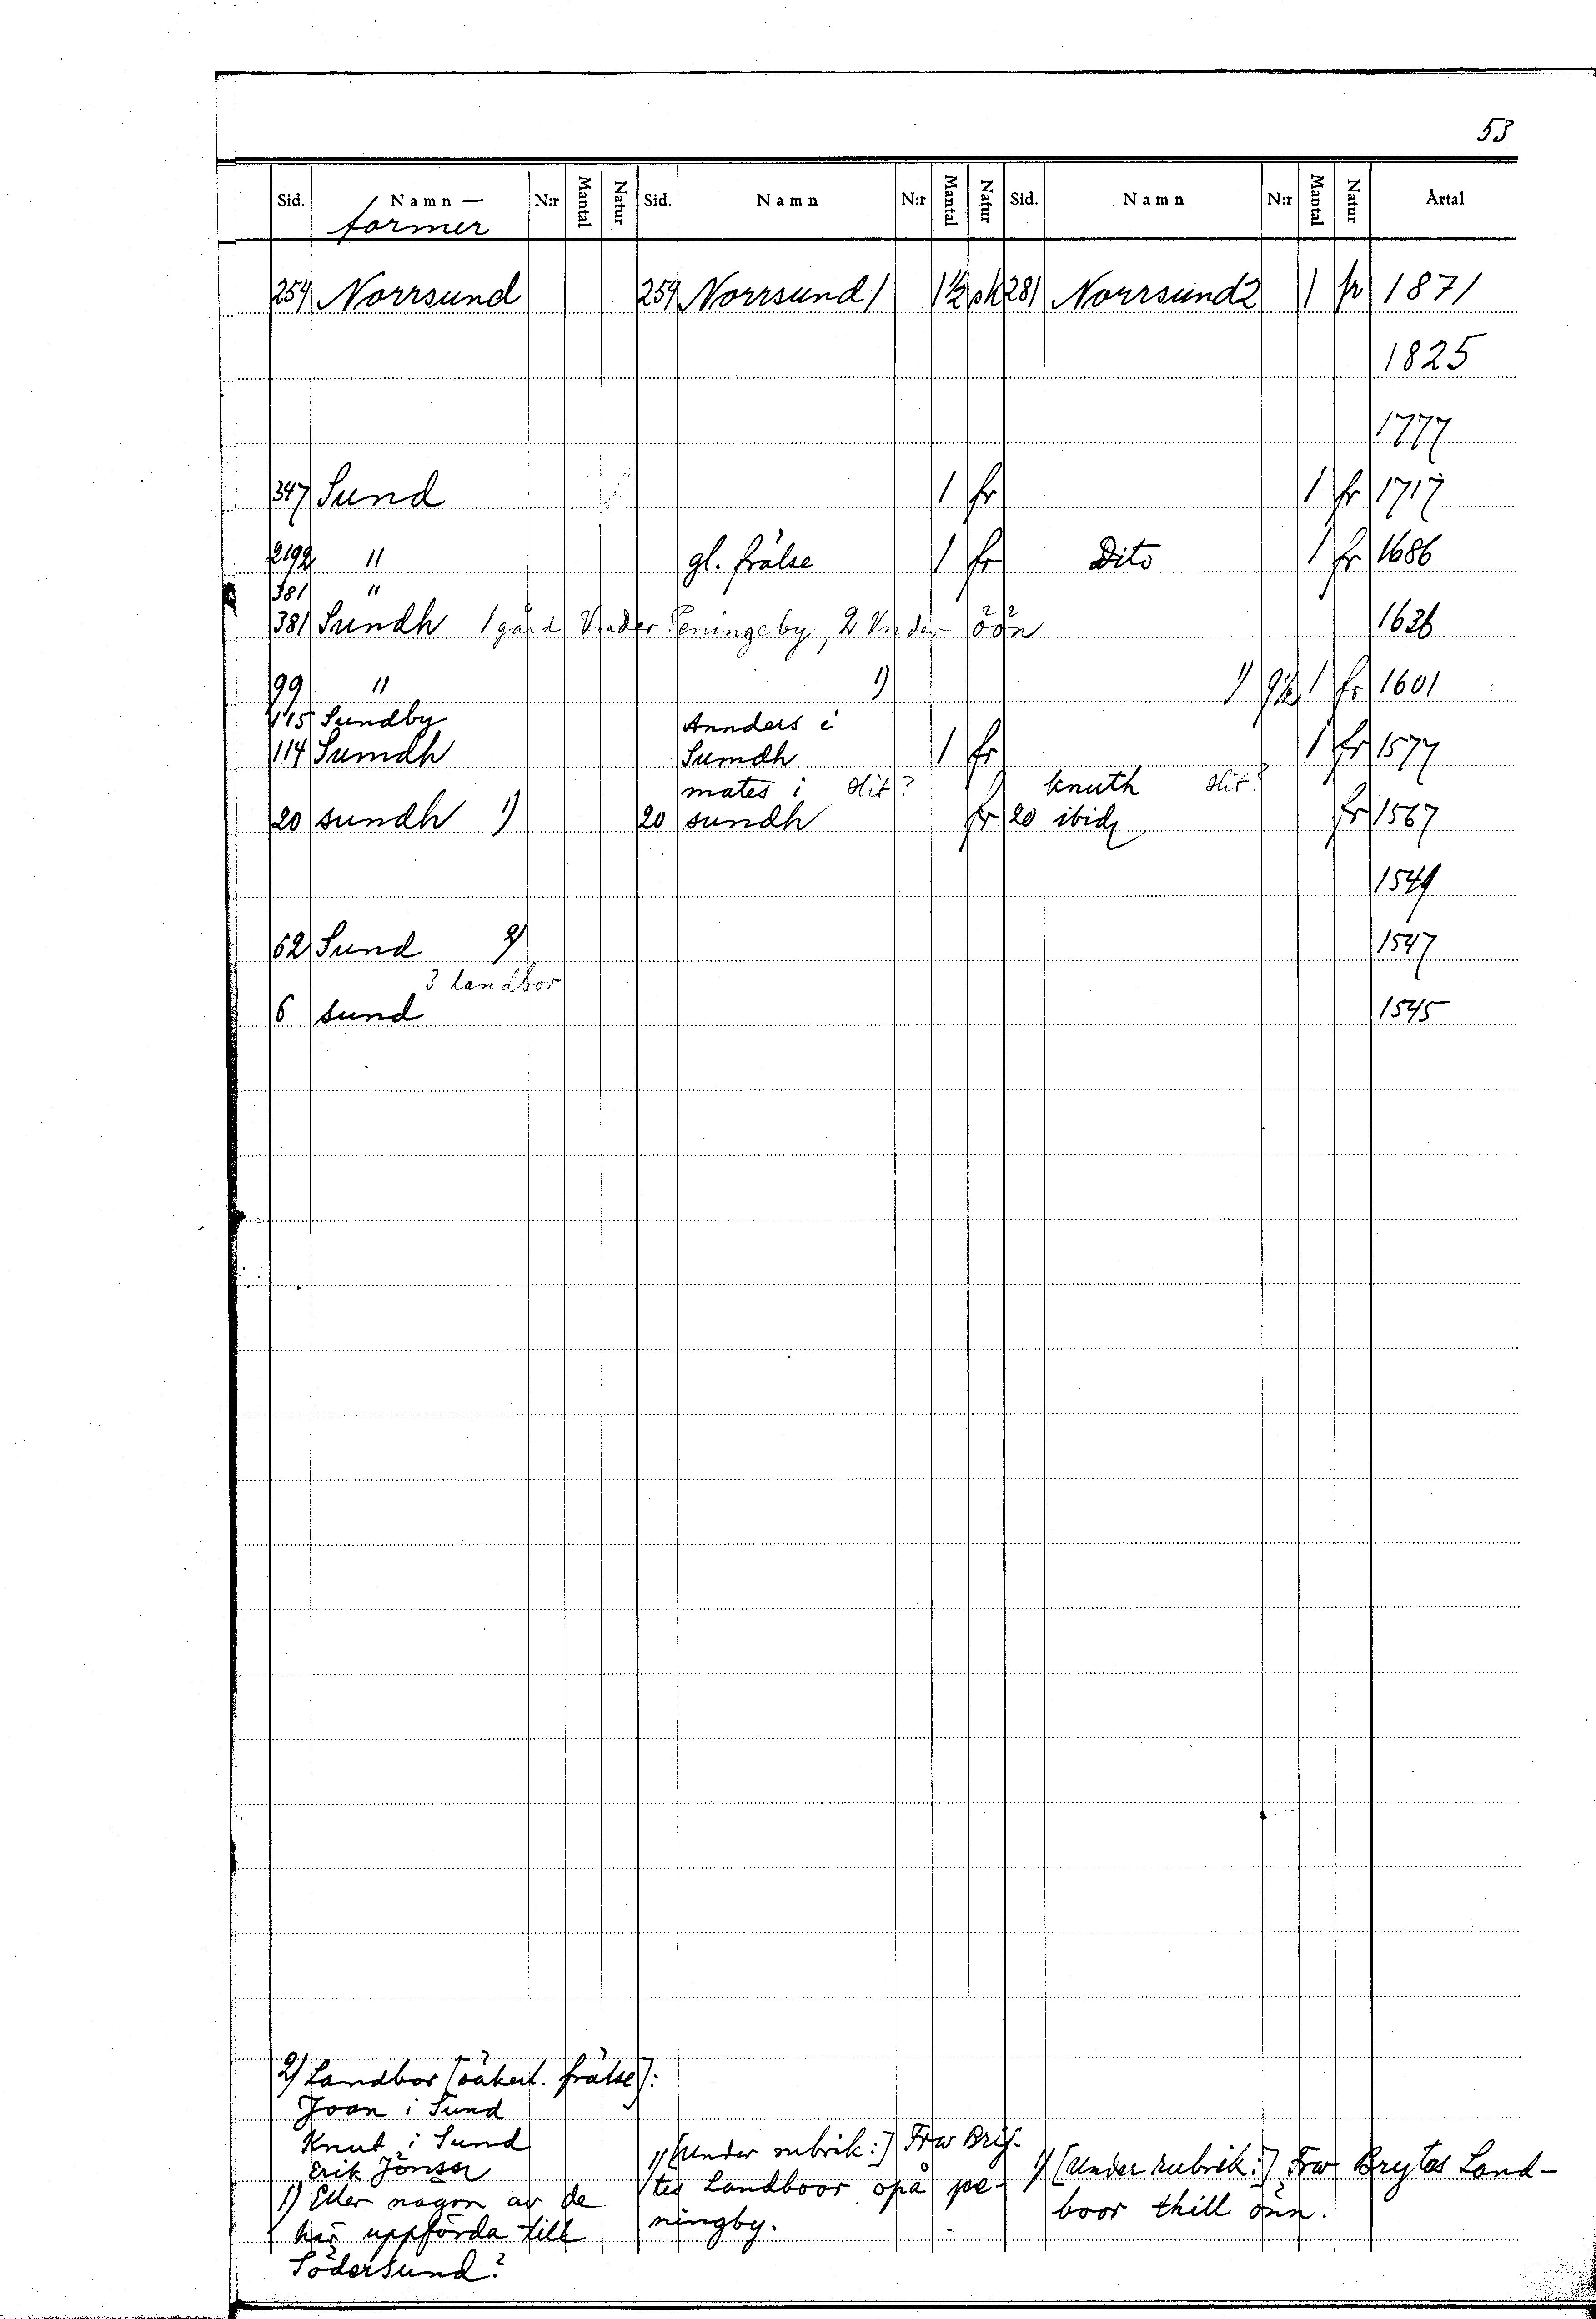 53
Sid. Namn— N:r Mantal Natur Sid. Namn N:r Mantal Natur Sid. Namn N:r Mantal Natur Årtal
former
254 Norrsund 254 Norrsund 1 1½ sk 281 Norrsund 2 1 fr 1871
1825
1777
347 Sund 1 fr 1 fr 1717
2192 " gl. frälse 1 fr Dito 1 fr 1686
381 "
381 Sundh 1 gård Vnder Peningeby, 2 Vnder öön 1636
99 " 1) 1) 1 fr 1601
115 Sundby Annders i
114 Sumdh Sumdh 1 fr 1 fr 1577
mates i Hit? knuth Hit?
20 sundh 1) 20 sundh fr 20 ibid fr 1567
1549
62 Sund 2) 1547
3 landbor
6 sund 1545
2) Landbor [osäkert. frälse]:
Joan i Sund
Knut i Sund
Erik Jönsson
1) Eller någon av de
här uppförda till
Södersund?
1) [Under rubrik:] Frw Brij-
tes Landboor opå pe-
ningby.
1) [Under rubrik:] Frw Brytes Land-
boor thill önn.